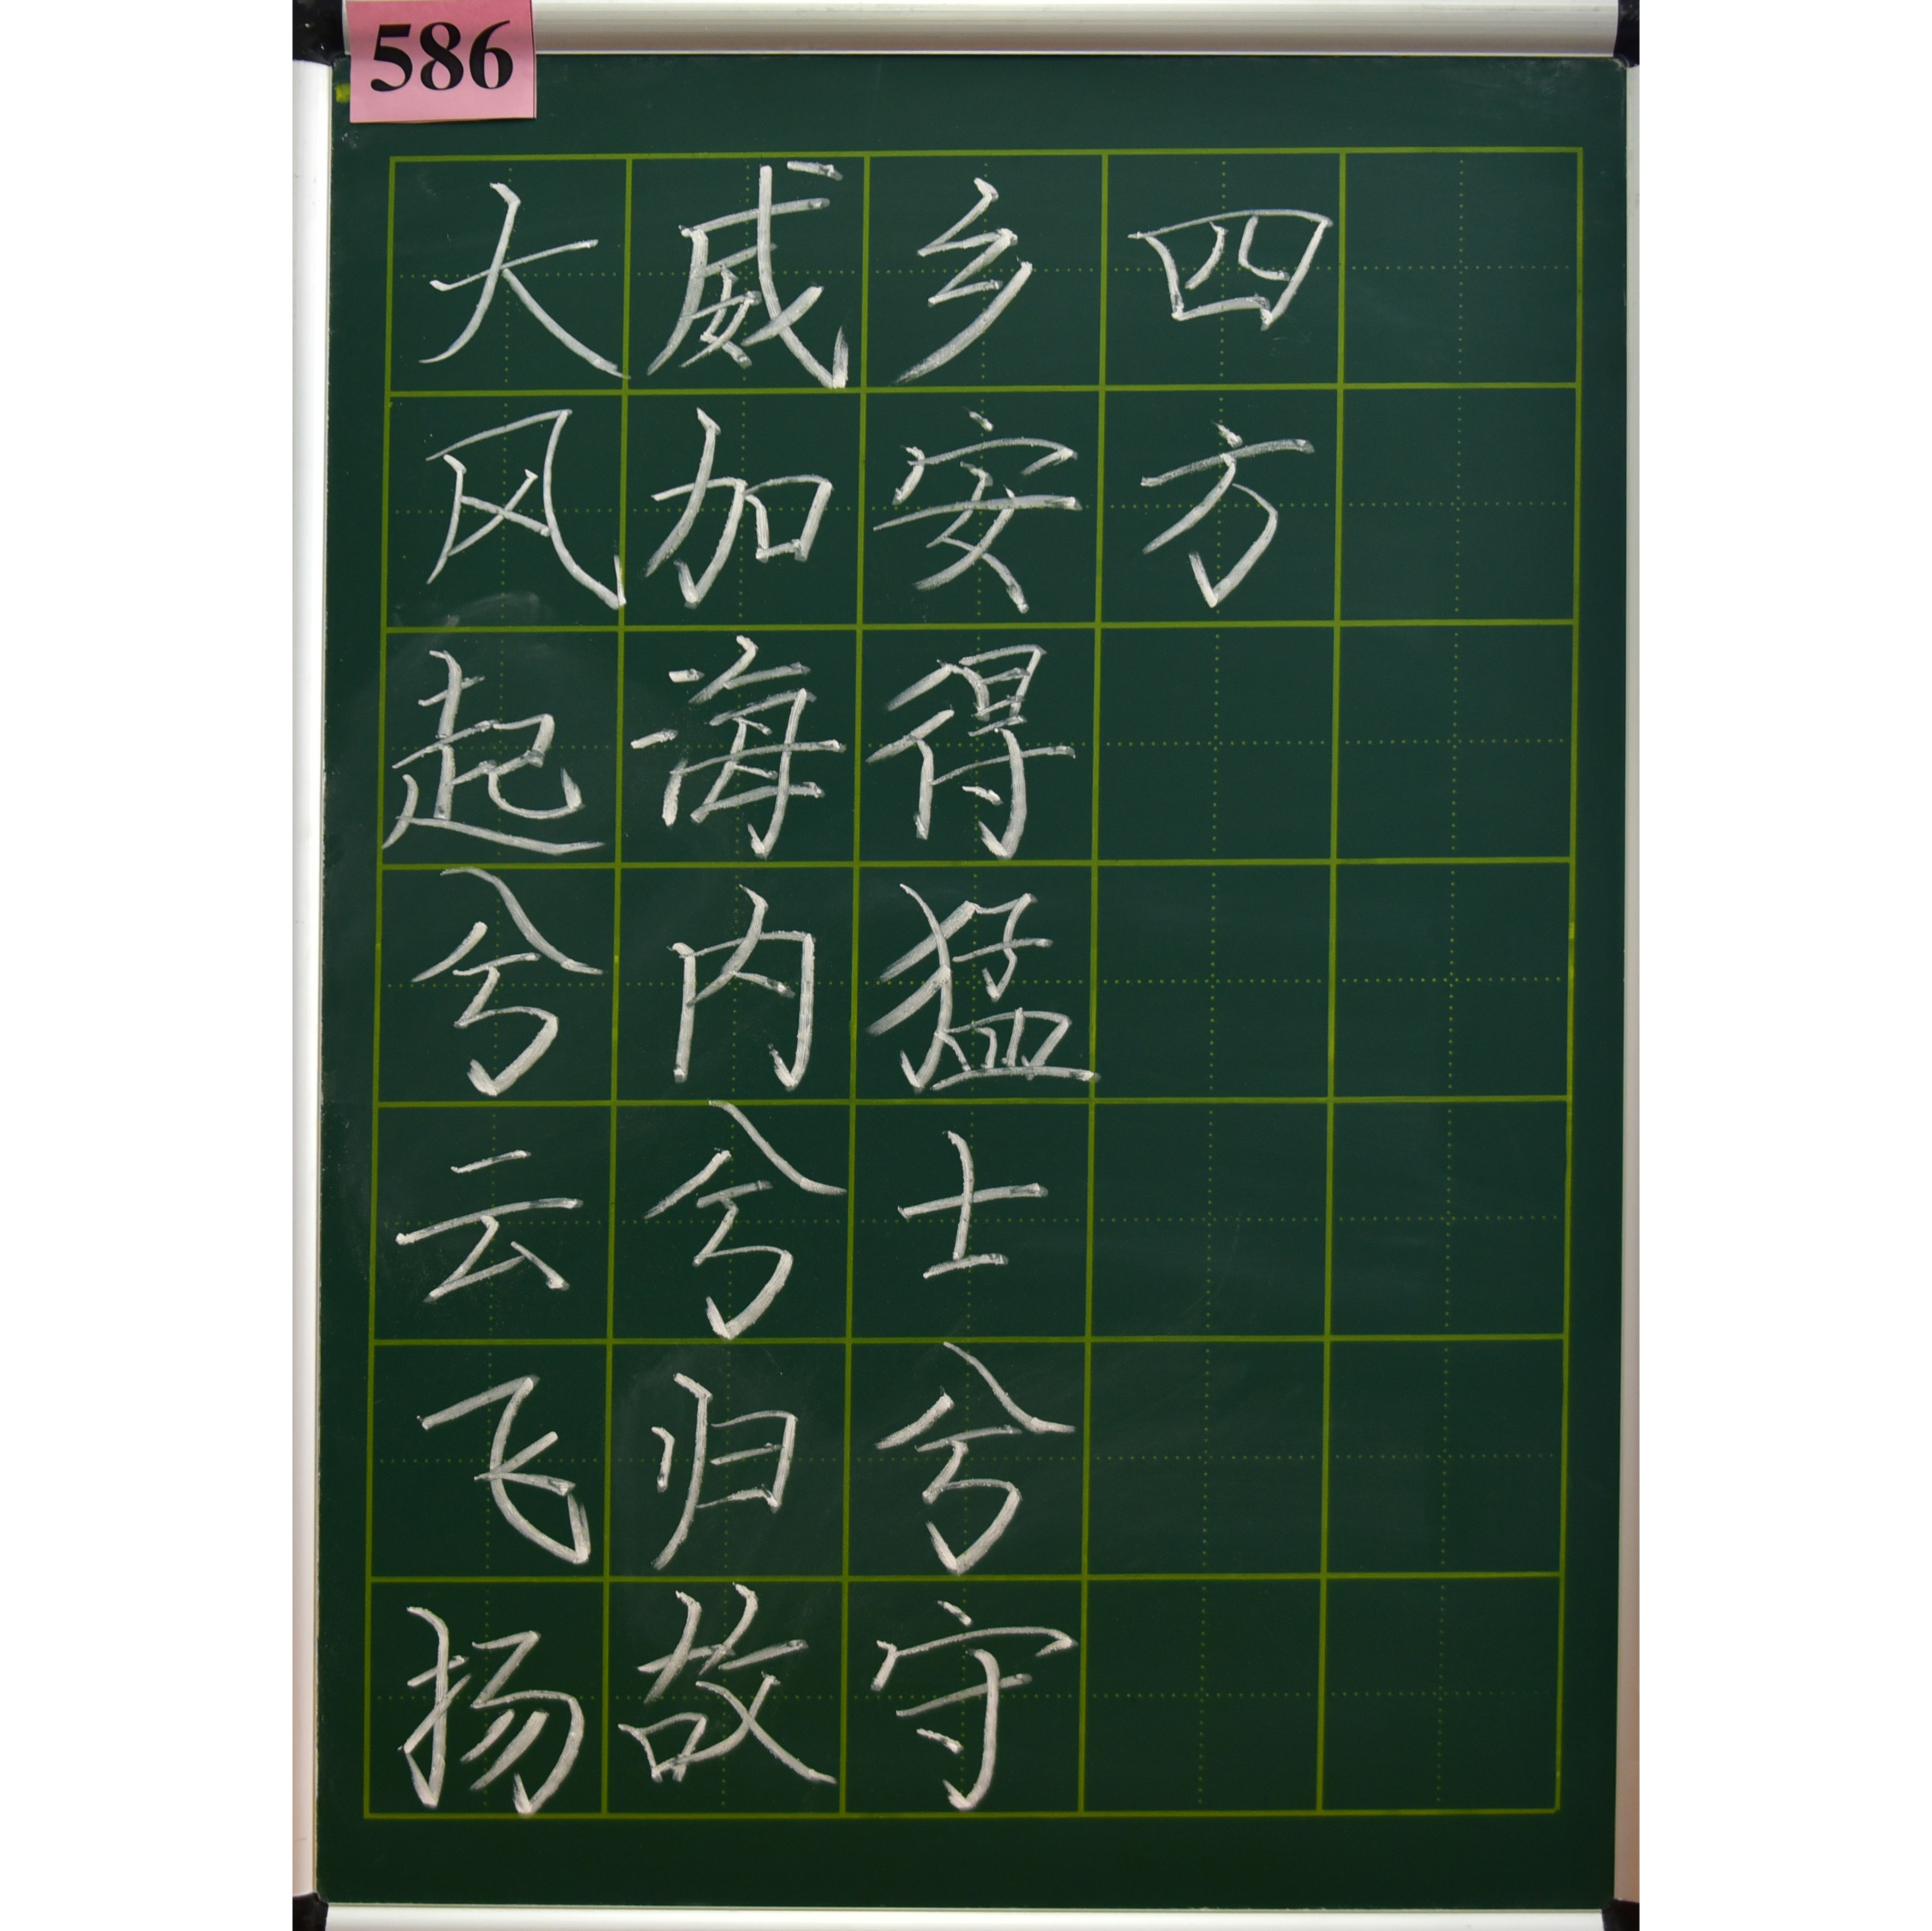 586
大风起兮云飞扬
威加海内兮归故
乡安得猛士兮守
四方